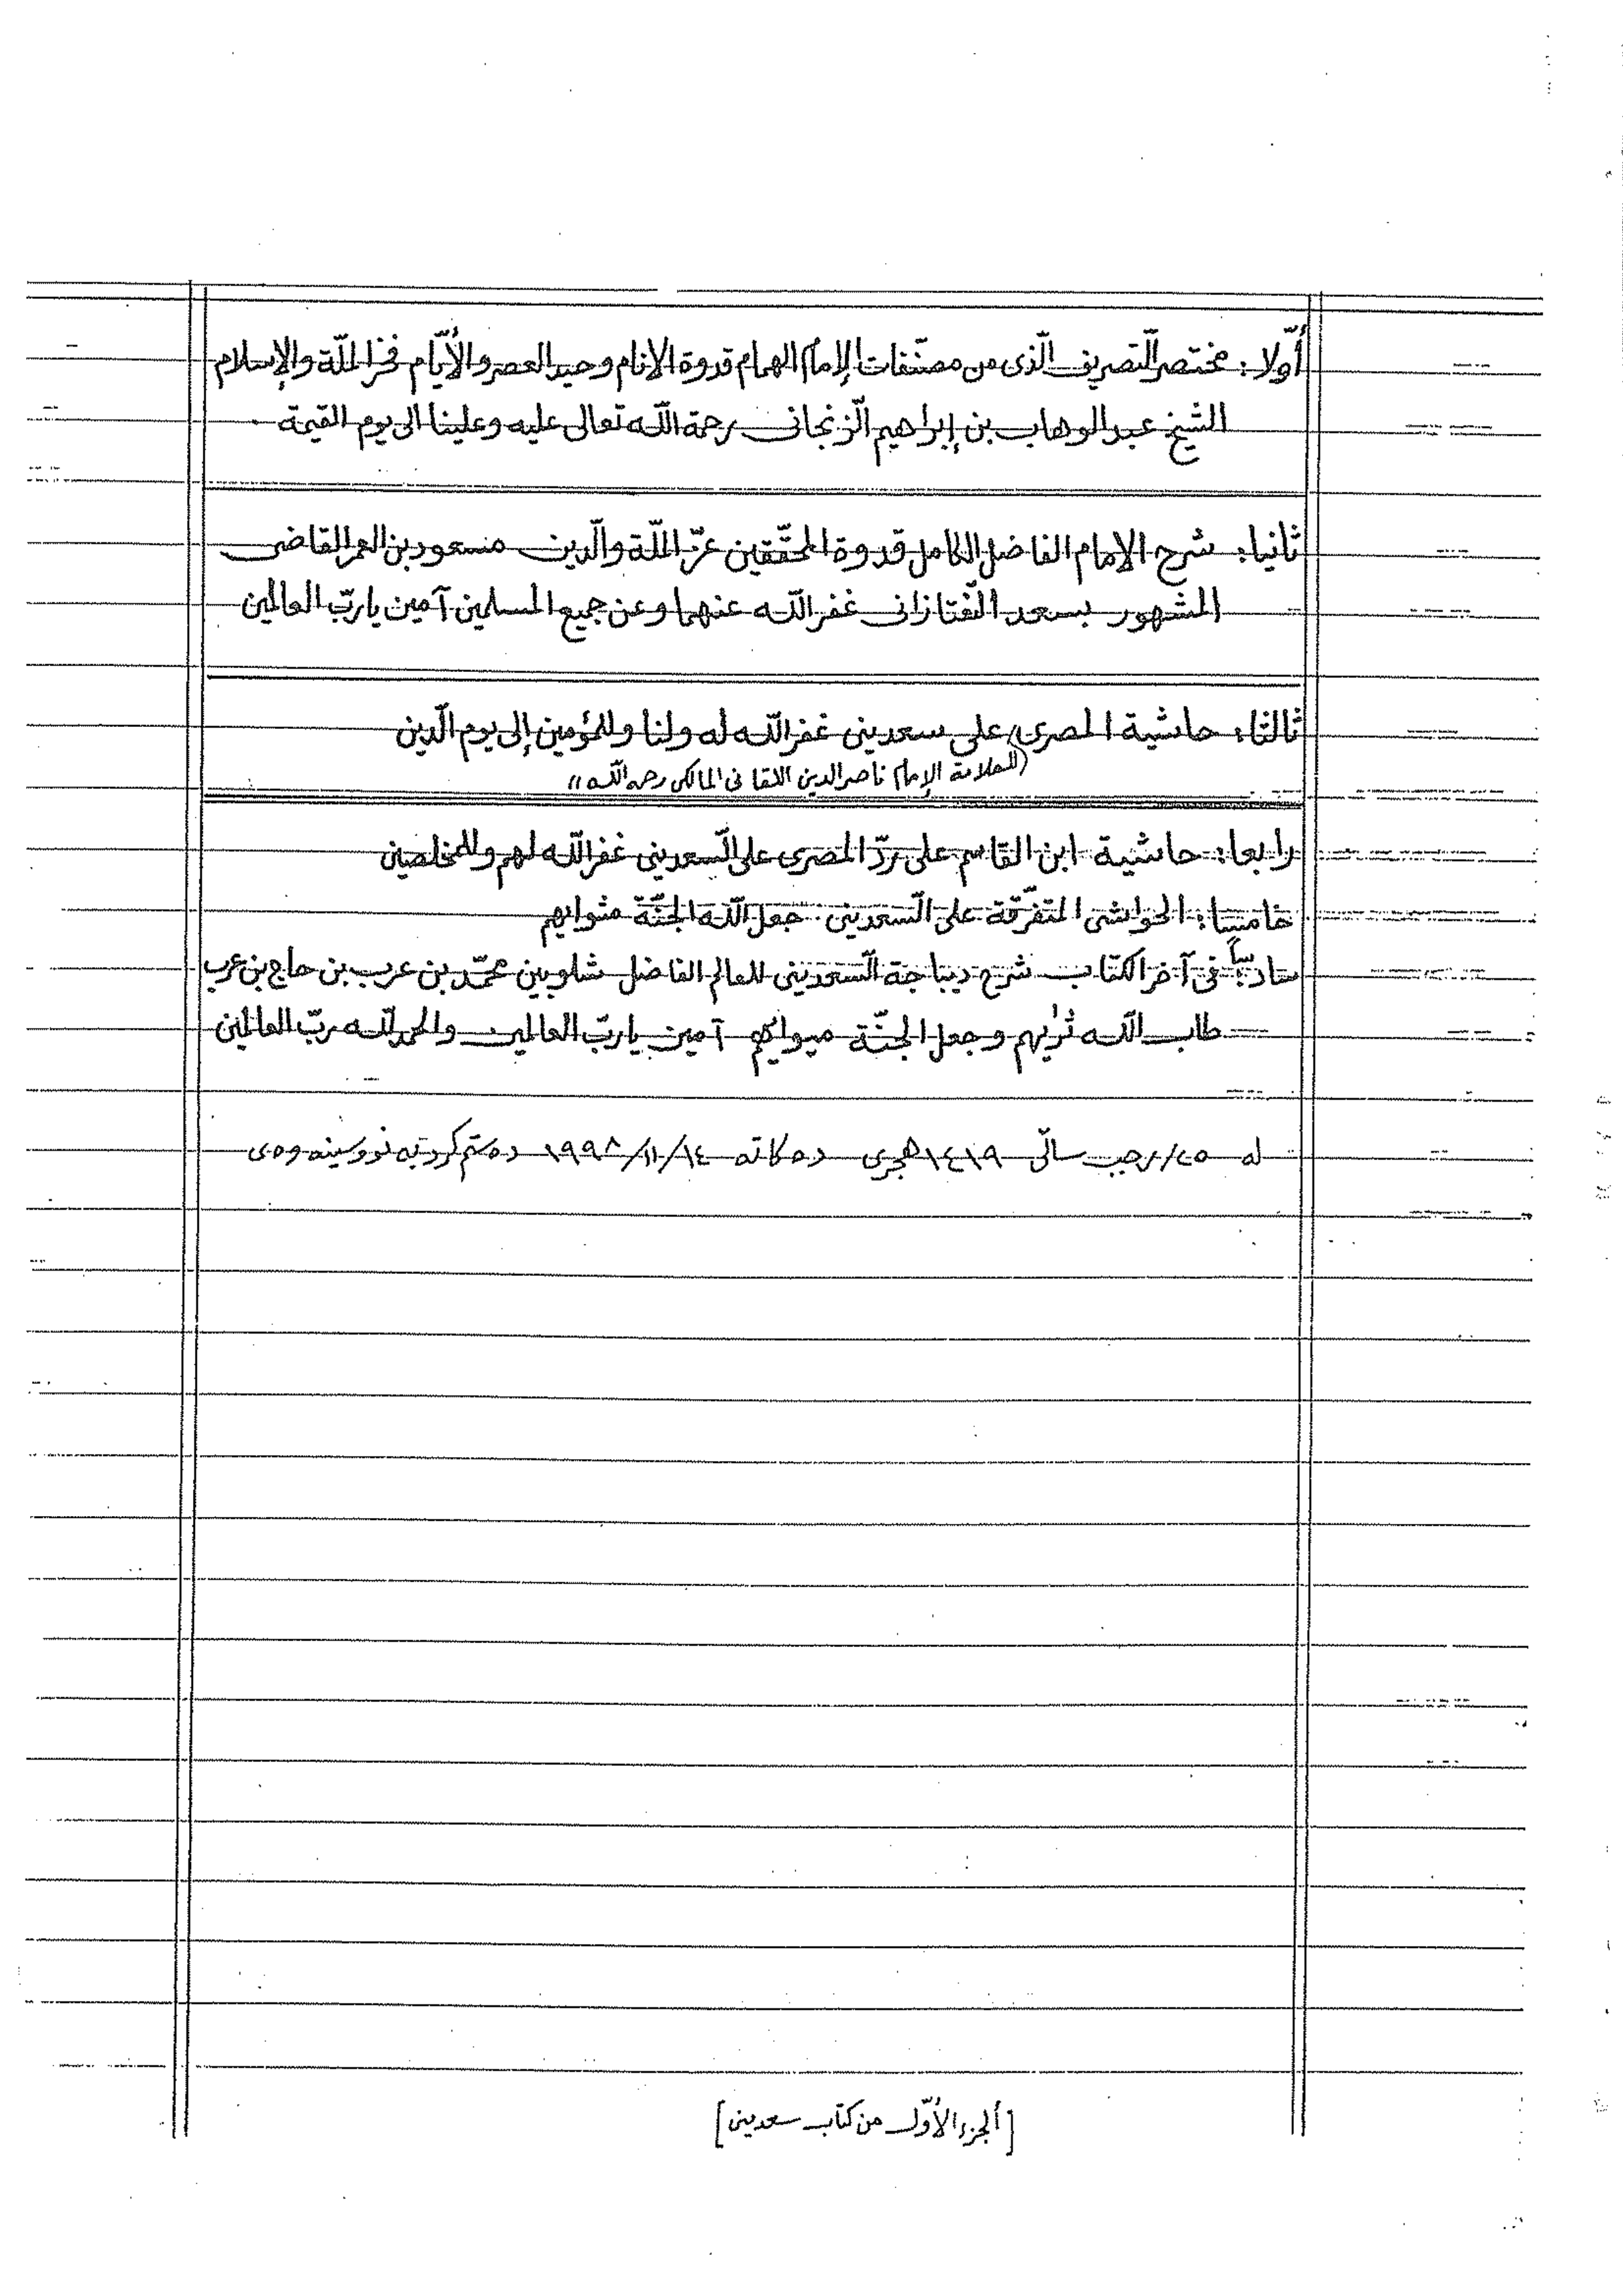 أوّلا: مختصر التّصريف الّذى من مصنّفات الإمام الهمام قدوة الانام وحيد العصر والأيّام فخر الملّة والإسلام
الشيخ عبد الوهاب بن إبراهيم الزّنجانى رحمة اللّه تعالى عليه وعلينا الى يوم القيمة
ثانيا: شرح الامام الفاضل الكامل قدوة المحقّقين عزّ الملّة والدّين مسعود بن العمر القاضى
المشهور بسعد التّفتازانى غفر اللّه عنهما وعن جميع المسلمين آمين يا ربّ العالمين
ثالثا: حاشية المصرى على سعدينى غفر اللّه له ولنا وللمؤمين إلى يوم الدّين
(للعلامة الإمام ناصر الدين اللقانى المالكى رحمه اللّه))
رابعا: حاشية ابن القاسم على ردّ المصرى على السّعدينى غفر اللّه لهم وللمخلصين
خامسا: الحواشى المتفرّقة على السّعدينى. جعل اللّه الجنّة مثوايهم
سادسًا فى آخر الكتاب شرح ديباجة السّعدينى للعالم الفاضل شلوبين محمّد بن عرب بن حاج بن عرب
طاب اللّه ثريهم وجعل الجنّة ميوايهم آمين يا ربّ العالمين والحمد للّه ربّ العالمين
له ٢٥/رجب سالّى ١٤١٩هجرى ده كاته ١٤/١١/١٩٩٨ ده ستم كرد به نووسينه وه ى
[ألجزء الأوّل من كتاب سعدينى]